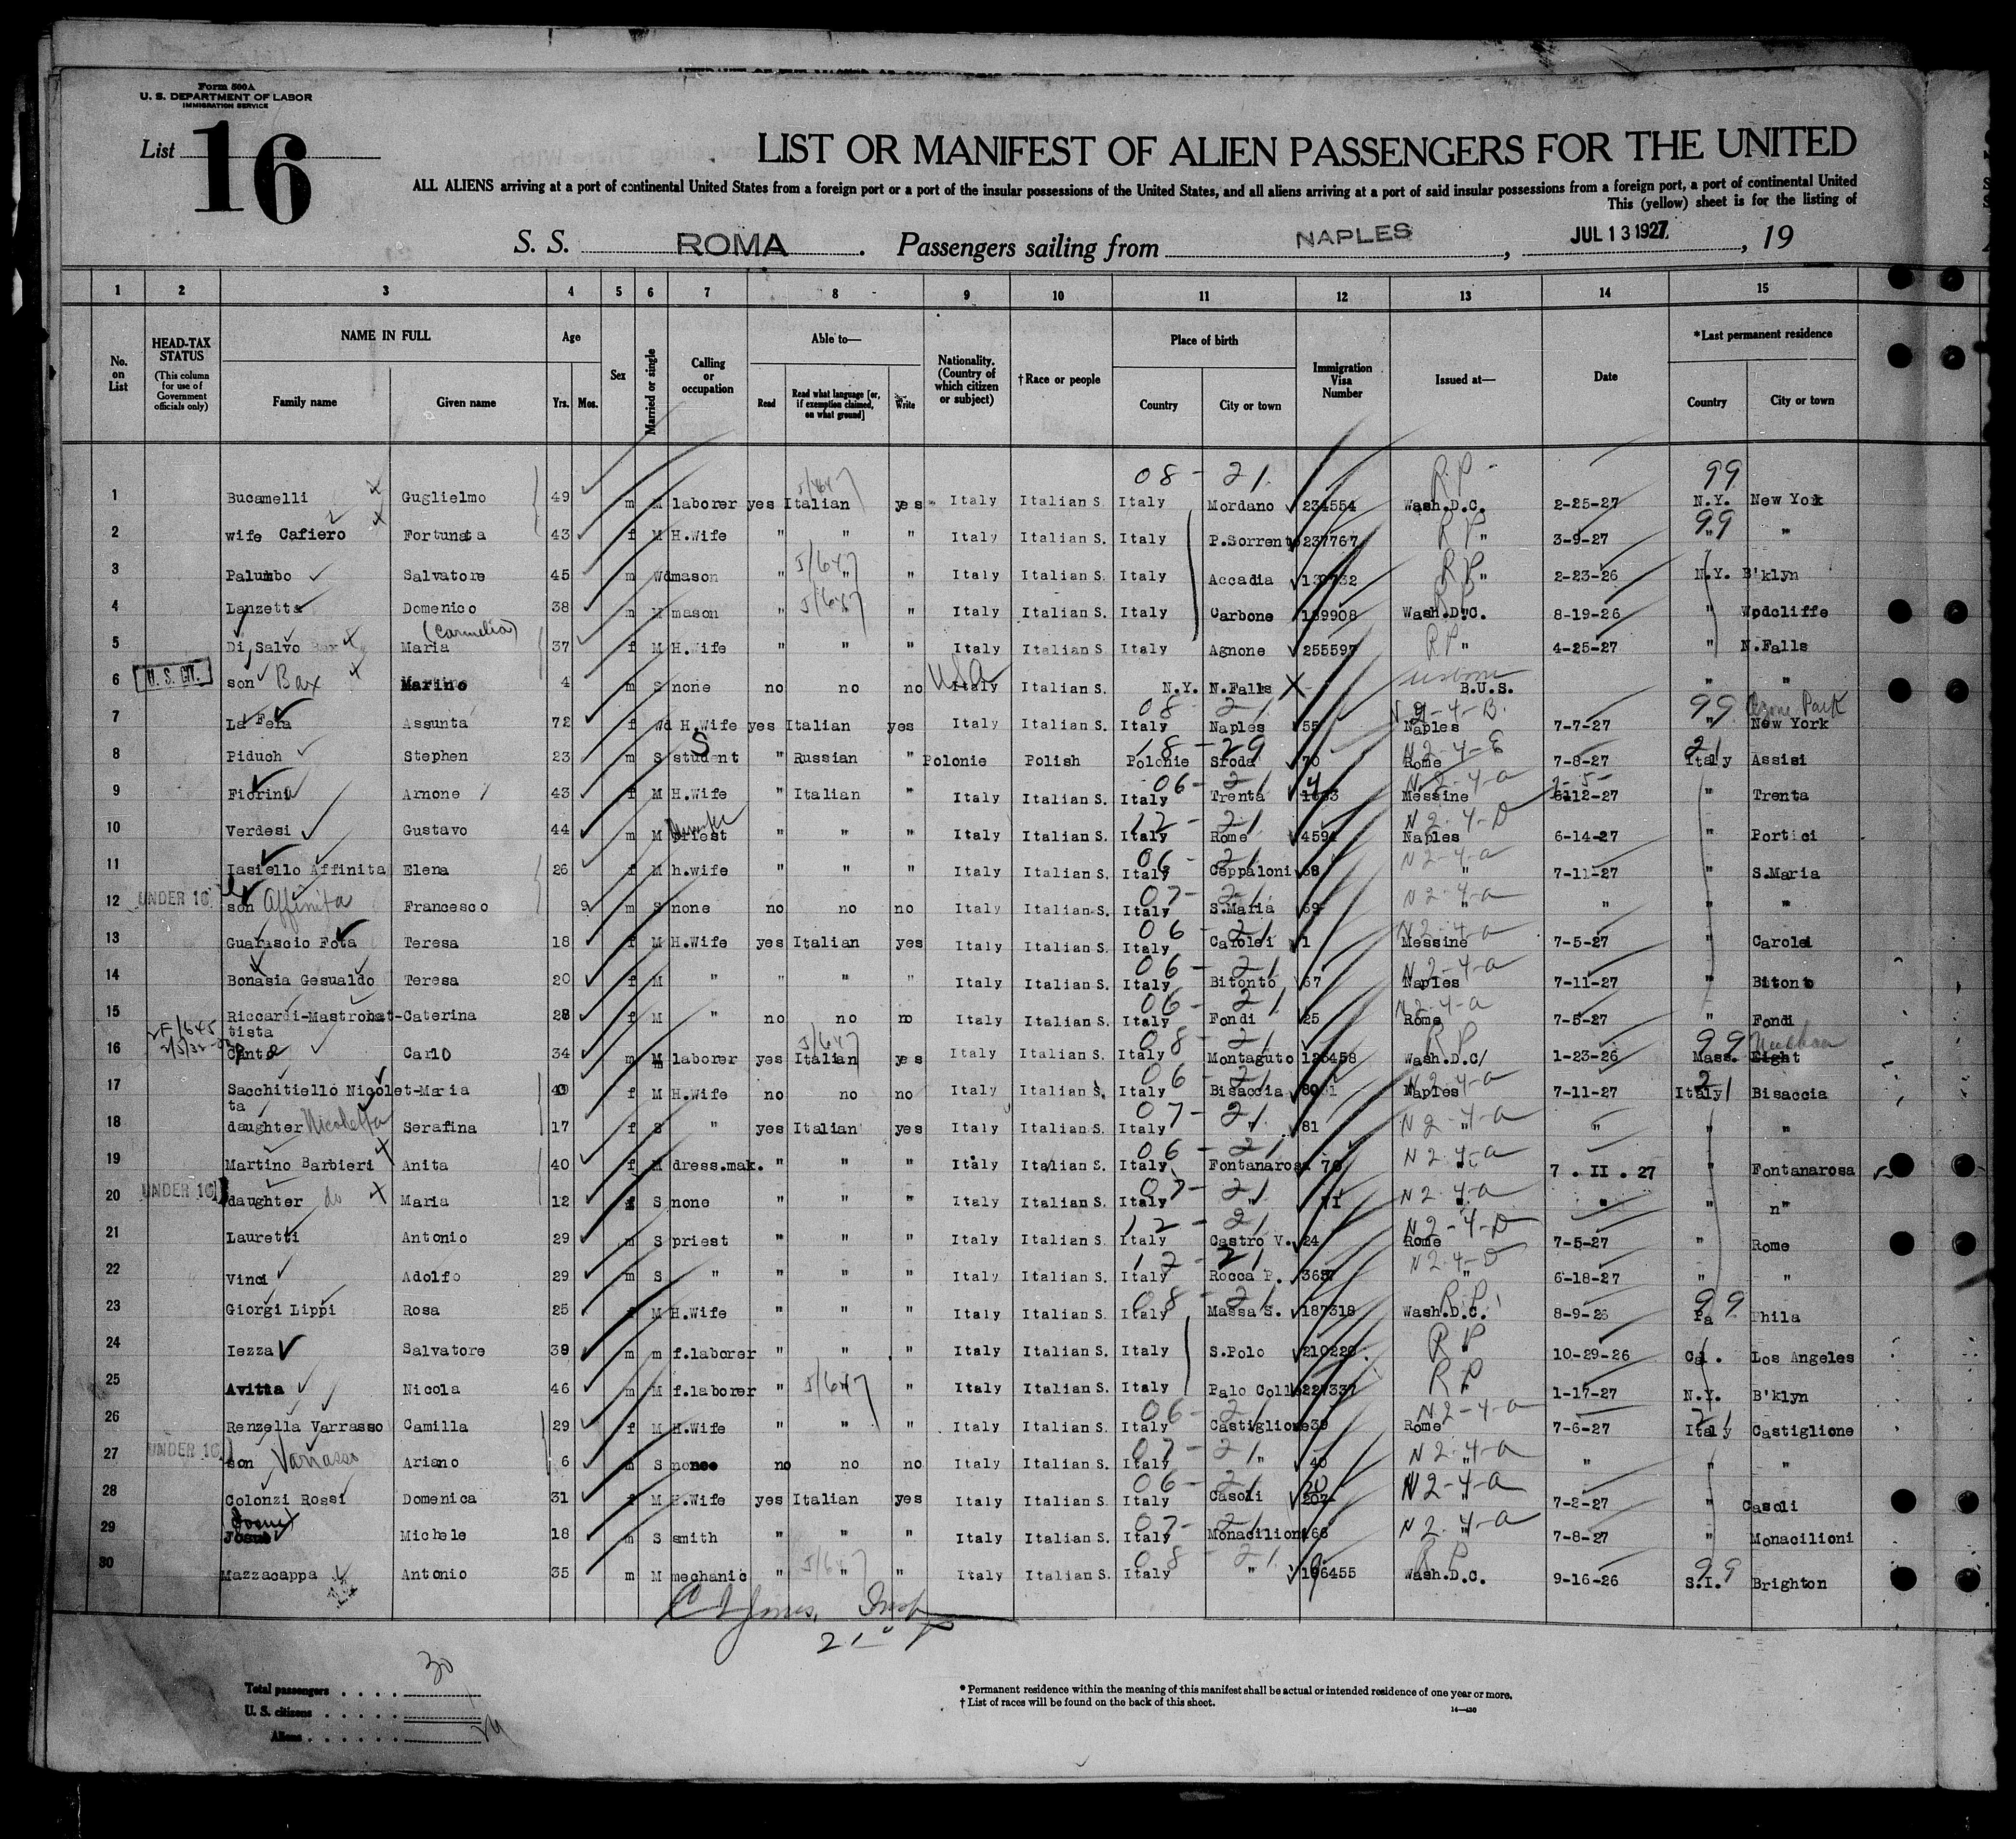 Form 500A
U. S. DEPARTMENT OF LABOR
IMMIGRATION SERVICE
List 16
LIST OR MANIFEST OF ALIEN PASSENGERS FOR THE UNITED
ALL ALIENS arriving at a port of continental United States from a foreign port or a port of the insular possessions of the United States, and all aliens arriving at a port of said insular possessions from a foreign port, a port of continental United
This (yellow) sheet is for the listing of
S. S. ROMA. Passengers sailing from NAPLES, JUL 13 1927, 19
1 2 3 4 5 6 7 8 9 10 11 12 13 14 15
No. on List
HEAD-TAX STATUS (This column for use of Government officials only)
NAME IN FULL Family name Given name
Age Yrs. Mos.
Sex
Married or single
Calling or occupation
Able to— Read Read what language [or, if exemption claimed, on what ground] Write
Nationality. (Country of which citizen or subject)
†Race or people
Place of birth Country City or town
Immigration Visa Number
Issued at—
Date
*Last permanent residence Country City or town
08 - 21 RP 99
1 Bucamelli Guglielmo 49 m M laborer yes Italian yes Italy Italian S. Italy Mordano 234554 Wash.D.C. 2-25-27 N.Y. New York
2 wife Cafiero Fortunata 43 f M H.Wife " " " Italy Italian S. Italy P.Sorrento 237767 RP " 3-9-27 99 " "
3 Palumbo Salvatore 45 m Wd mason " " " Italy Italian S. Italy Accadia RP " 2-23-26 N.Y. B'klyn
4 Lanzetta Domenico 38 m M mason " " " Italy Italian S. Italy Carbone 139908 Wash.D.C. 8-19-26 " Wodcliffe
(Carmelia)
5 Di Salvo Bax Maria 37 f M H.Wife " " " Italy Italian S. Italy Agnone 255597 RP " 4-25-27 " N.Falls
6 U. S. CIT. son Bax Marino 4 m S none no no no USA Italy Italian S. N.Y. N.Falls B.U.S. " "
08 - 21 N 2-4-B. 99 Ozone Park
7 La Fera Assunta 72 f Wd H.Wife yes Italian yes Italy Italian S. Italy Naples 55 Naples 7-7-27 " New York
18 - 29 N 2-4-E 21
8 Piduch Stephen 23 m S student " Russian " Polonie Polish Polonie Sroda 70 Rome 7-8-27 Italy Assisi
06 - 21 N 2-4-a
9 Fiorini Arnone 43 f M H.Wife " Italian " Italy Italian S. Italy Trenta Messine 6-12-27 " Trenta
12 - 21 N 2-4-D
10 Verdesi Gustavo 44 m M priest " " " Italy Italian S. Italy Rome 4594 Naples 6-14-27 " Portici
06 - 21 N 2-4-a
11 Iasiello Affinita Elena 26 f M h.wife " " " Italy Italian S. Italy Ceppaloni 68 " 7-11-27 " S.Maria
07 - 21 N 2-4-a
12 UNDER 16 son Affinita Francesco 9 m S none no no no Italy Italian S. Italy S.Maria 69 " " " "
06 - 21 N 2-4-a
13 Guarascio Fota Teresa 18 f M H.Wife yes Italian yes Italy Italian S. Italy Carolei 1 Messine 7-5-27 " Carolei
06 - 21 N 2-4-a
14 Bonasia Gesualdo Teresa 20 f M " " " " Italy Italian S. Italy Bitonto 67 Naples 7-11-27 " Bitonto
06 - 21 N 2-4-a
15 Riccardi-Mastrobat-tista Caterina 28 f M " no no no Italy Italian S. Italy Fondi 25 Rome 7-5-27 " Fondi
08 - 21 RP 99
16 Canto Carlo 34 m M laborer yes Italian yes Italy Italian S. Italy Montaguto 126458 Wash.D.C/ 1-23-26 Mass. Eight
06 - 21 N 2-4-a 21
17 Sacchitiello Nicolet-ta Maria 49 f M H.Wife no no no Italy Italian S. Italy Bisaccia Naples 7-11-27 Italy Bisaccia
07 - 21 N 2-4-a
18 daughter Nicoletta Serafina 17 f S " yes Italian yes Italy Italian S. Italy " 81 " " " "
06 - 21 N 2-4-a
19 Martino Barbieri Anita 40 f M dress.mak. " " " Italy Italian S. Italy Fontanarosa 70 " 7 . II . 27 " Fontanarosa
07 - 21 N 2-4-a
20 UNDER 16 daughter do Maria 12 f S none " " " Italy Italian S. Italy " 7I " " " n"
12 - 21 N 2-4-D
21 Lauretti Antonio 29 m S priest " " " Italy Italian S. Italy Castro V. 24 Rome 7-5-27 " Rome
12 - 21 N 2-4-D
22 Vinci Adolfo 29 m S " " " " Italy Italian S. Italy Rocca P. 3657 " 6-18-27 " "
08 - 21 RP 99
23 Giorgi Lippi Rosa 25 f M H.Wife " " " Italy Italian S. Italy Massa S. 187318 Wash.D.C. 8-9-26 Pa Phila
24 Iezza Salvatore 39 m m f.laborer " " " Italy Italian S. Italy S.Polo 210220 RP " 10-29-26 Cal. Los Angeles
25 Avitta Nicola 46 m M f.laborer " " " Italy Italian S. Italy Palo Colle 227337 RP " 1-17-27 N.Y. B'klyn
06 - 21 N 2-4-a 21
26 Renzella Varrasso Camilla 29 f M H.Wife " " " Italy Italian S. Italy Castiglione 39 Rome 7-6-27 Italy Castiglione
07 - 21 N 2-4-a
27 UNDER 16 son Varrasso Ariano 6 m S none no no no Italy Italian S. Italy " 40 " " " "
06 - 21 20 N 2-4-a
28 Colonzi Rossi Domenica 31 f M H.Wife yes Italian yes Italy Italian S. Italy Casoli 207 " 7-2-27 " Casoli
07 - 21 N 2-4-a
29 Josue Michele 18 m S smith " " " Italy Italian S. Italy Monacilioni 66 " 7-8-27 " Monacilioni
08 - 21 RP 99
30 Mazzacappa Antonio 35 m M mechanic " " " Italy Italian S. Italy " 196455 Wash.D.C. 9-16-26 S.I. Brighton
Total passengers . . . . 30
U. S. citizens . . . . .
Aliens . . . . . .
* Permanent residence within the meaning of this manifest shall be actual or intended residence of one year or more.
† List of races will be found on the back of this sheet.
14—430